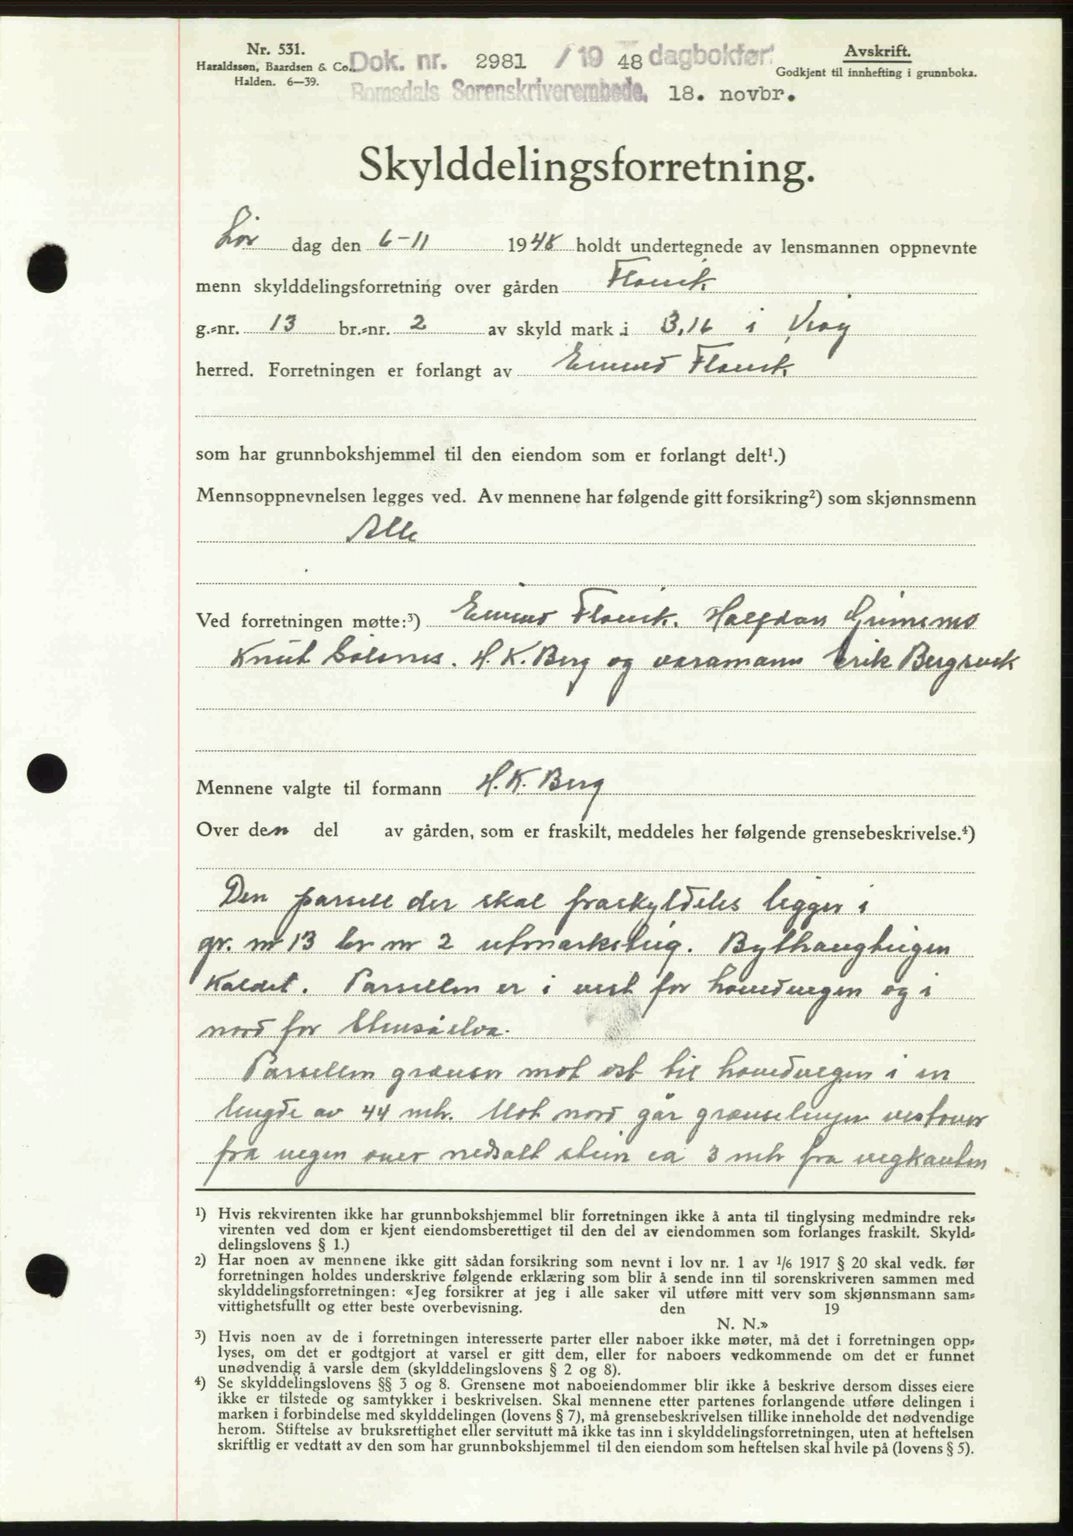 Nr. 531.
Haraldssen, Baardsen & Co.,
Halden. 6—39.
Dok. nr. 2981 / 19 48 dagbokført
Romsdals Sorenskriverembede. 18. novbr.
Avskrift.
Godkjent til innhefting i grunnboka.
Skylddelingsforretning.
Lør dag den 6-11 1948 holdt undertegnede av lensmannen oppnevnte
menn skylddelingsforretning over gården Flovik
g.=nr. 13 br.=nr. 2 av skyld mark i 3,16 i Våg
herred. Forretningen er forlangt av Eivind Flovik
som har grunnbokshjemmel til den eiendom som er forlangt delt¹.)
Mennsoppnevnelsen legges ved. Av mennene har følgende gitt forsikring²) som skjønnsmenn
Alle
Ved forretningen møtte:³) Eivind Flovik. Halfdan Grimsmo
Knut Solsnes. H. K. Berg og varamann Erik Bergsvik
Mennene valgte til formann H. K. Berg
Over den del av gården, som er fraskilt, meddeles her følgende grensebeskrivelse.⁴)
Den parsell der skal fraskyldeles ligger i
gr. nr 13 br nr 2 utmarksteig. Bythaugteigen
kaldet. Parsellen er i vest for hovedvegen og i
nord for Stensåelva.
Parsellen grænser mot ost til hovedvegen i en
lengde av 44 mtr. Mot nord går grænselinjen vestover
fra vegen over nedsatt stein ca 3 mtr fra vegkanten
¹) Hvis rekvirenten ikke har grunnbokshjemmel blir forretningen ikke å anta til tinglysing medmindre rek=
virenten ved dom er kjent eiendomsberettiget til den del av eiendommen som forlanges fraskilt. Skyld=
delingslovens § 1.)
²) Har noen av mennene ikke gitt sådan forsikring som nevnt i lov nr. 1 av 1/6 1917 § 20 skal vedk. før
forretningen holdes underskrive følgende erklæring som blir å sende inn til sorenskriveren sammen med
skylddelingsforretningen: «Jeg forsikrer at jeg i alle saker vil utføre mitt verv som skjønnsmann sam=
vittighetsfullt og etter beste overbevisning. den 19
N. N.»
³) Hvis noen av de i forretningen interesserte parter eller naboer ikke møter, må det i forretningen opp=
lyses, om det er godtgjort at varsel er gitt dem, eller for naboers vedkommende om det er funnet
unødvendig å varsle dem (skylddelingslovens § 2 og 8).
⁴) Se skylddelingslovens §§ 3 og 8. Grensene mot naboeiendommer blir ikke å beskrive dersom disses eiere
ikke er tilstede og samtykker i beskrivelsen. Skal mennene etter partenes forlangende utføre delingen i
marken i forbindelse med skylddelingen (lovens § 7), må grensebeskrivelsen tillike inneholde det nødvendige
herom. Stiftelse av bruksrettighet eller servitutt må ikke tas inn i skylddelingsforretningen, uten at heftelsen
skriftlig er vedtatt av den som har grunnbokshjemmel til den eiendom som heftelsen skal hvile på (lovens § 5).